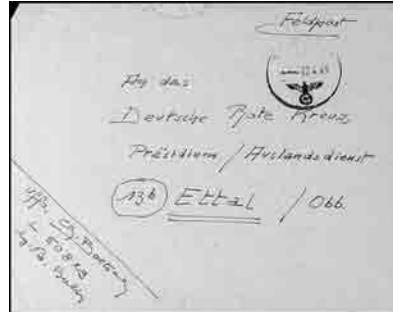 Feldpost
An das
Deutsche Rote Kreuz,
Präsidium / Auslandsdienst
13b Ettal / Obb.
Uffz.
L 50843